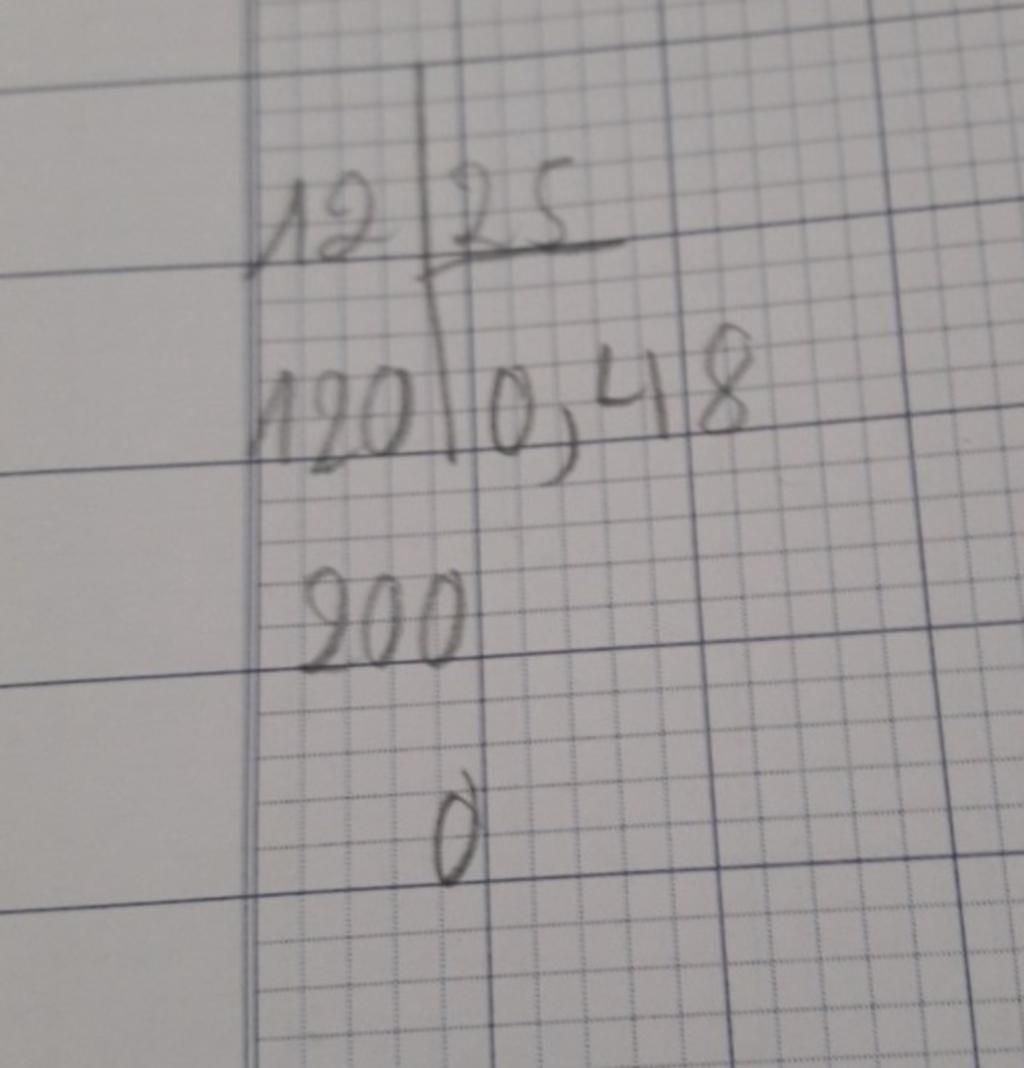 12 25
120 0,48
200
0